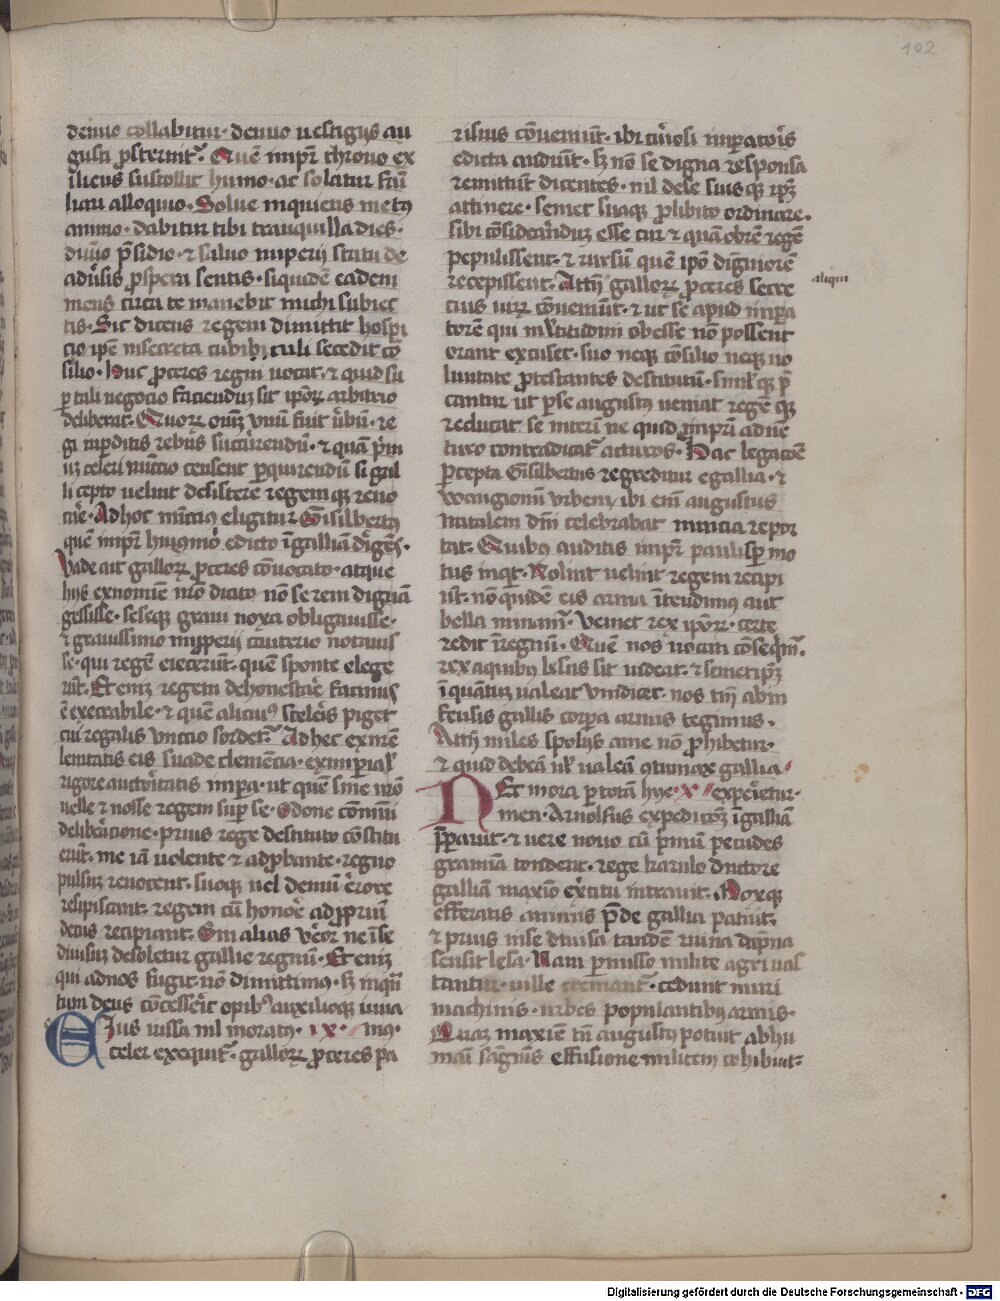 102
denuo collabitur. denuo uestigijs au
gusti ꝓsternit᷑. Quē impr̄ throno ex
iliens sustollit humo. ac solatur fam̄i
liari alloquio. Solue inquiens metꝰ
animo. dabitur tibi tranquilla dies.
diuīo p̄sidio. ⁊ saluo imperij statu de
adūsis ꝓspera sentis. siquidē eadem
mens circa te manebit michi subiec
tis. Sic dicens regem dimittit hospi
cio ip̄e insecreta cubibi culi secedit cō
silio. Huc ꝓceres regni uocat. ⁊ quid su
ꝑ tali negocio faciendūꝫ sit ip̄oꝝ arbitrio
deliberat. Quoꝝ om̄ vnū fuit ūbū. re
gi inperditis rebꝰ succurrendū. ⁊ quā pm
uꝫ celeri nuncio censent ꝑquirendū si gal
li cepto uelint desistere regem qꝫ reuo
care. Ad hoc nunciꝰ eligitur Gisilbertꝰ
quē impr̄ huiꝯmo edicto ī galliā dirigēs.
Vade ait galloꝝ ꝓceres cōuocato. atque
hijs ex nomīe nr̄o dicito nō se rem dignā
gessisse. seseqꝫ graui noxa obligauisse.
⁊ grauissimo imperij cauterio notauis
se. qui regē eiecerūt. quē sponte elege
rūt. Et eniꝫ regem dehonestare facinus
ē execrabile. ⁊ quē aliciuꝰ sceleris piget
cui regalis vnctio sordet᷑. Ad hec ex nr̄e
lenitatis eis suade clemēcia. ex imperial
rigore auctoritatis impa. ut quē sine nr̄o
uelle ⁊ nosse regem suꝑ se. Odone cōmuni
deliberacione. prius rege destituto cōstitu
erūt. me iā uolente ⁊ adꝓbante. regno
pulsuꝫ reuocent. suoqꝫ uel demū errore
resipiscant. regem cū honore ad ꝓpriū
decus recipiant. Sin alias vereor ne ī se
diuisuꝫ desoletur gallie regnū. Et eniꝫ
qui ad nos fugit nō dimittimꝰ. sꝫ inquā
tum deus concesserit opibꝰ auxilioqꝫ iuua
Eius iussa nil moratꝰ. ix. mꝰ.
celer exequit᷑. galloꝝ ꝓceres pa
risius cōueniūt. ibi cū̄oli imꝑatoris
edicta audiūt. sꝫ nō se digna responsa
remittūt dicentes. nil de se suis qꝫ ip̄ꝫ
attinere. semet suaqꝫ ꝓ libito ordinare.
sibi cōsiderānduꝫ esse cur ⁊ quā obrē regē
pepulissent. ⁊ rursuꝫ quē ip̄o digniorē
recepissent. Attn̄ galloꝝ ꝓceres secre
aliqui
cius iterꝝ cōueniūt. ⁊ ut se apud impa
torē qui multitudini obesse nō possent
orant excuset. suo neqꝫ cōsilio neqꝫ uo
luntate ꝓtestantes destitutū. simulqꝫ p̄
cantur ut per se augustꝰ ueniat regē qꝫ
reducat. se interī ne quid impr̄i aduē
turo contradicat᷑ acturos. Hac legatōe
ꝑcepta Gisilbertus regreditur e gallia. ⁊
vvangionū vrbem, ibi em̄ augustus
natalem dn̄i celebrabat nuncia repor
tat. Quibꝰ auditis impr̄ paulisꝑ mo
tus inqͥt. Nolint uelint regem recipi
ūt. nō quidē eis arma ītendimus aut
bella minam᷑. Veniet rex ipsoꝝ. certe
redit ī regnū. Quē nos uocati cōseqm᷑.
rex a quibus lesus sit uideat. ⁊ semetip̄ꝫ
ī quātuꝫ ualeat vindicet. nos tn̄ ab in
fensis gallis corꝑa armis tegimus.
Attn̄ miles spolijs a me nō ꝓhibetur.
⁊ quid debeā uel ualeā ꝯtumax gallia
NEt mora ꝑ totā hye. x. experietur.
men. Arnolfus expedicōꝫ ī galliā
p̄parat. ⁊ uere nouo cū primū pecudes
gramina tondent. rege karulo ductore
galliā maxīo exercitu intrauit. Moxqꝫ
efferatis animis p̄de gallia patuit.
⁊ prius in se diuisa tandē ruina dampna
sensit lesa. Nam ꝑmisso milite agri uas
tantur. uille cremant᷑. cedunt muri
machinis. urbes populantibꝰ armis.
Quaꝫ maxīe tn̄ augustꝰ potuit ab hu
mani sagnis effusione militem cohibuit.
Digitalisierung gefördert durch die Deutsche Forschungsgemeinschaft - DFG